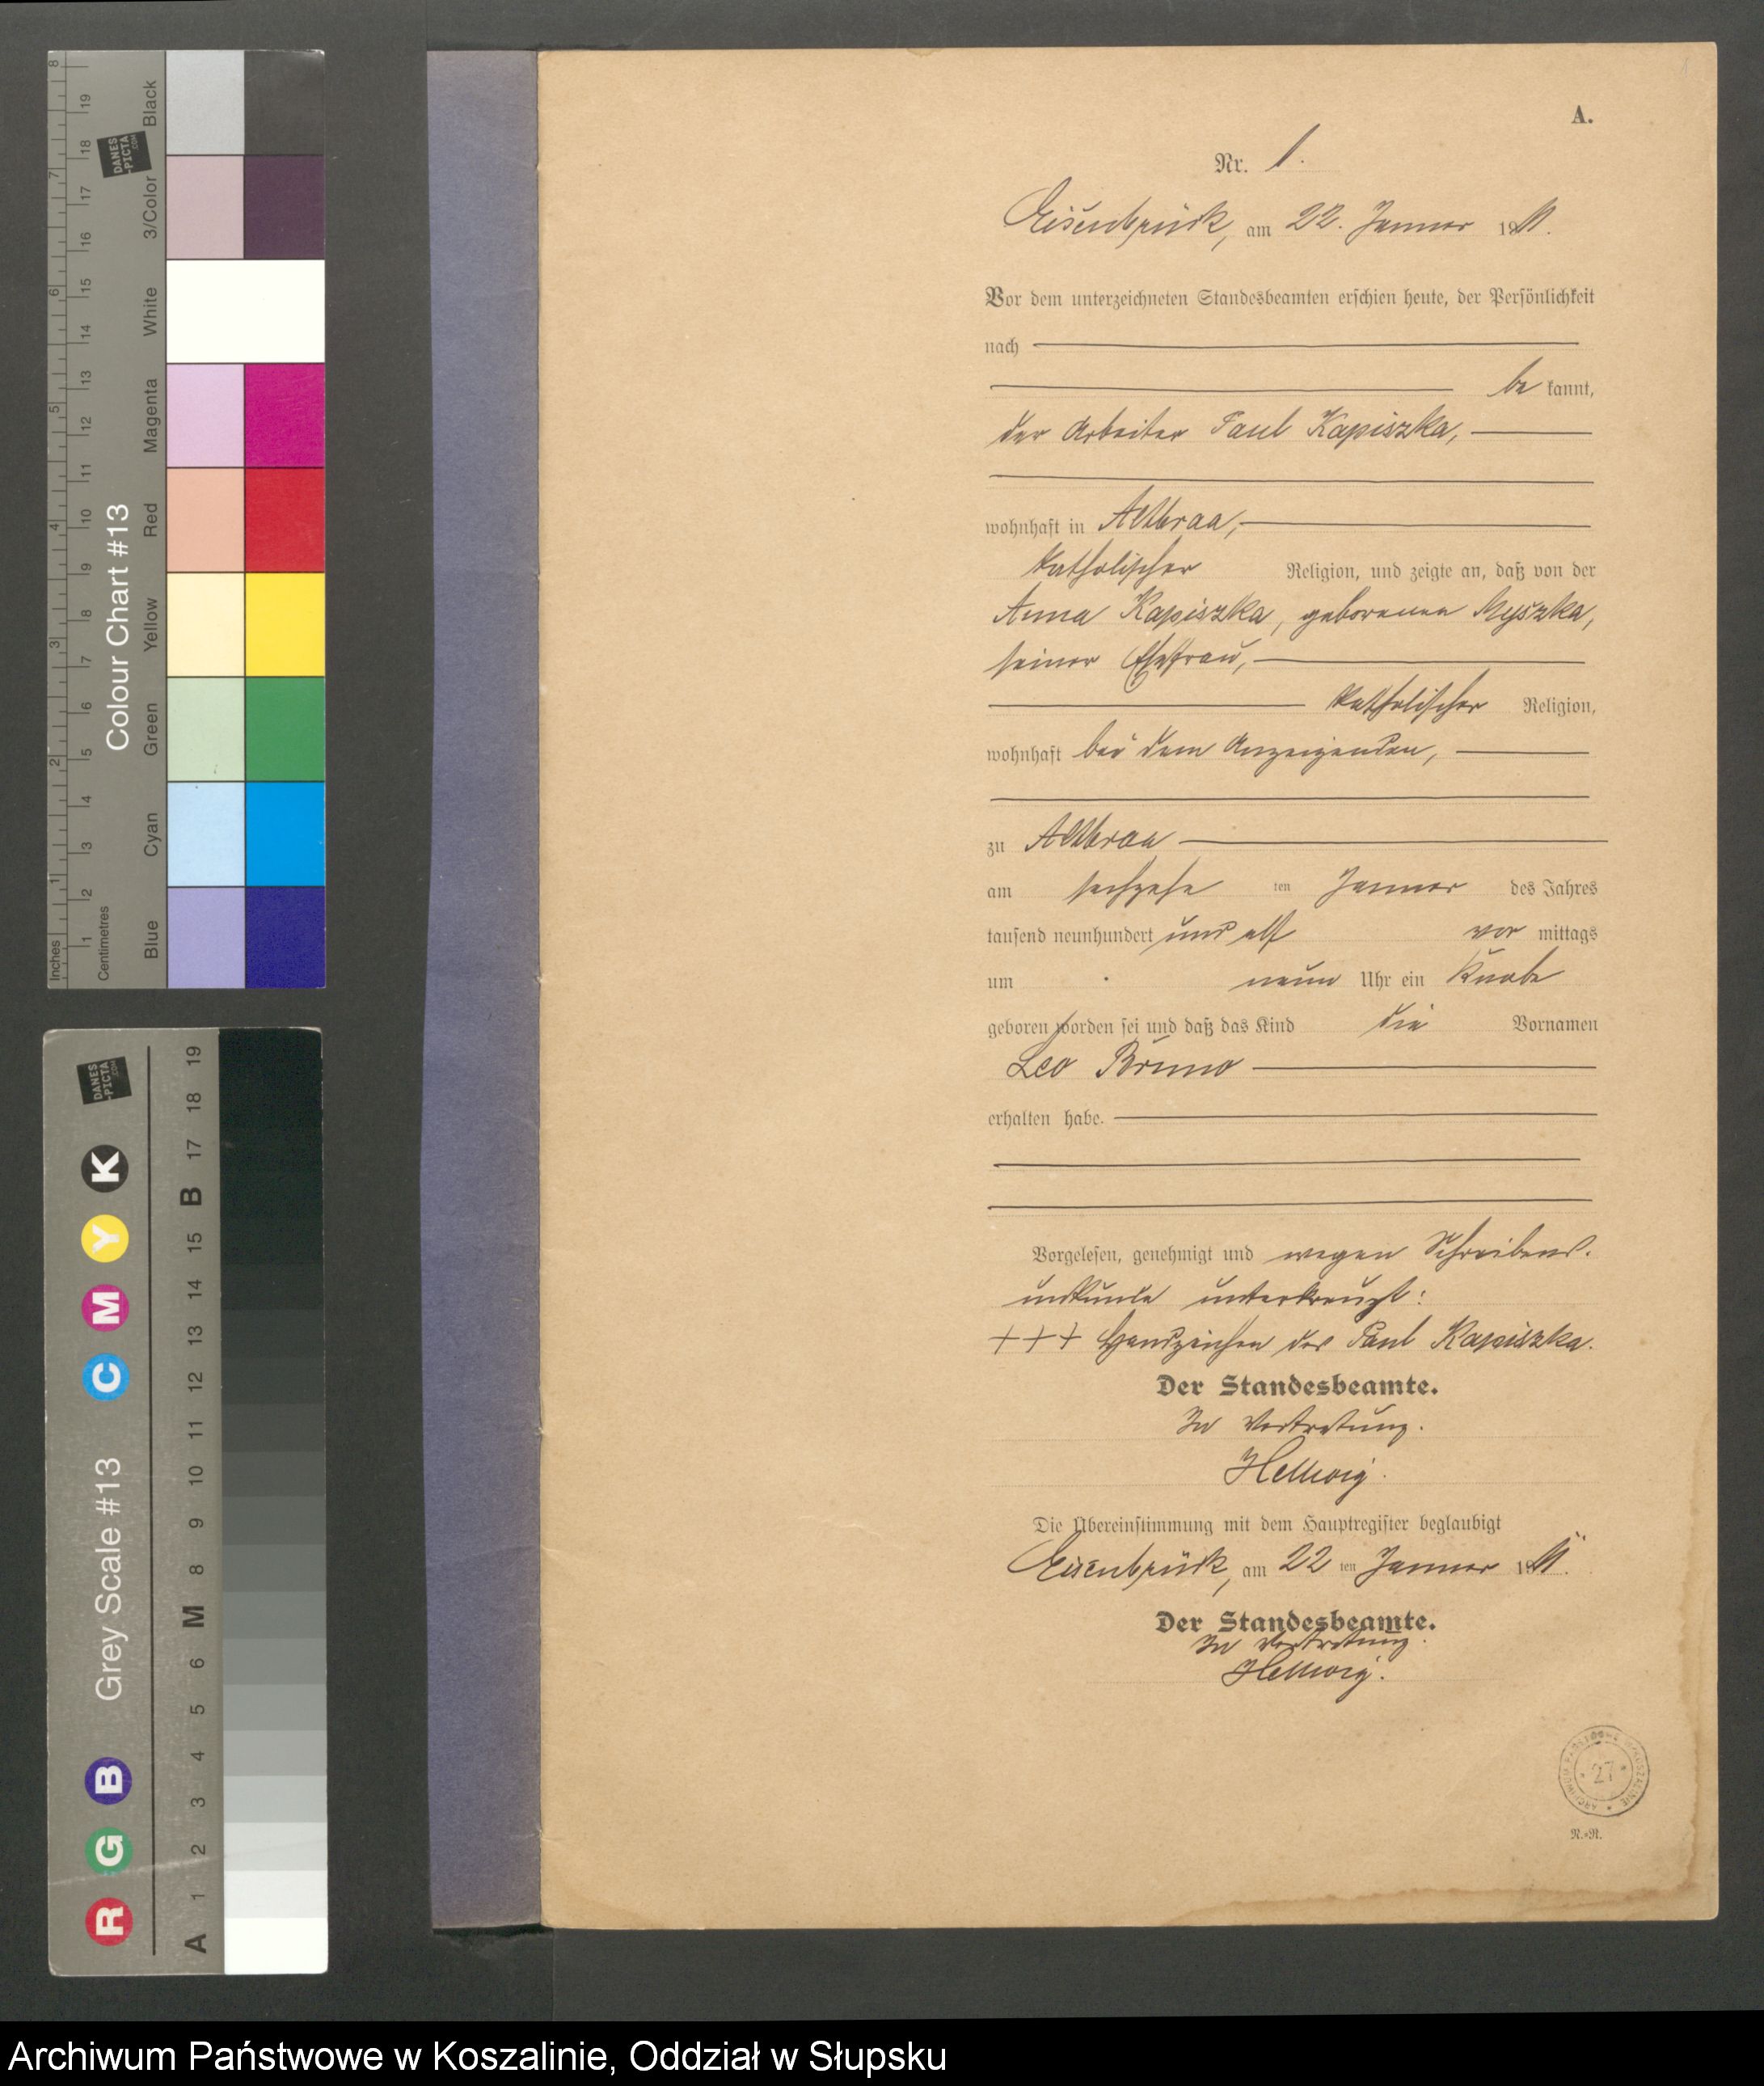 A.
Nr. 1.
Eisenbrück, am 22. Januar 1911.
Vor dem unterzeichneten Standesbeamten erschien heute, der Persönlichkeit
nach
be kannt,
der Arbeiter Paul Kapiszka,
wohnhaft in Altbraa,
katholischer Religion, und zeigte an, daß von der
Anna Kapiszka, geborenen Myszka,
seiner Ehefrau,
katholischer Religion,
wohnhaft bei dem Anzeigenden,
zu Altbraa
am sechzehn ten Januar des Jahres
tausend neunhundert und elf vor mittags
um neun Uhr ein Knabe
geboren worden sei und daß das Kind die Vornamen
Leo Bruno
erhalten habe.
Vorgelesen, genehmigt und wegen Schreibens-
unkunde unterkreuzt:
+++ Handzeichen des Paul Kapiszka.
Der Standesbeamte.
In Vertretung.
Hellwig.
Die Übereinstimmung mit dem Hauptregister beglaubigt
Eisenbrück, am 22 ten Januar 1911.
Der Standesbeamte.
In Vertretung.
Hellwig.
ARCHIWUM PAŃSTWOWE W KOSZALINIE
* 27 *
R.-R.
Colour Chart #13
Black
3/Color
White
Magenta
Red
Yellow
Green
Cyan
Blue
Inches 1 2 3 4 5 6 7 8
Centimetres 1 2 3 4 5 6 7 8 9 10 11 12 13 14 15 16 17 18 19
DANES
-PICTA
.COM
Grey Scale #13
R G B C M Y K
A 1 2 3 4 5 6 M 8 9 10 11 12 13 14 15 B 17 18 19
DANES
-PICTA
.COM
Archiwum Państwowe w Koszalinie, Oddział w Słupsku